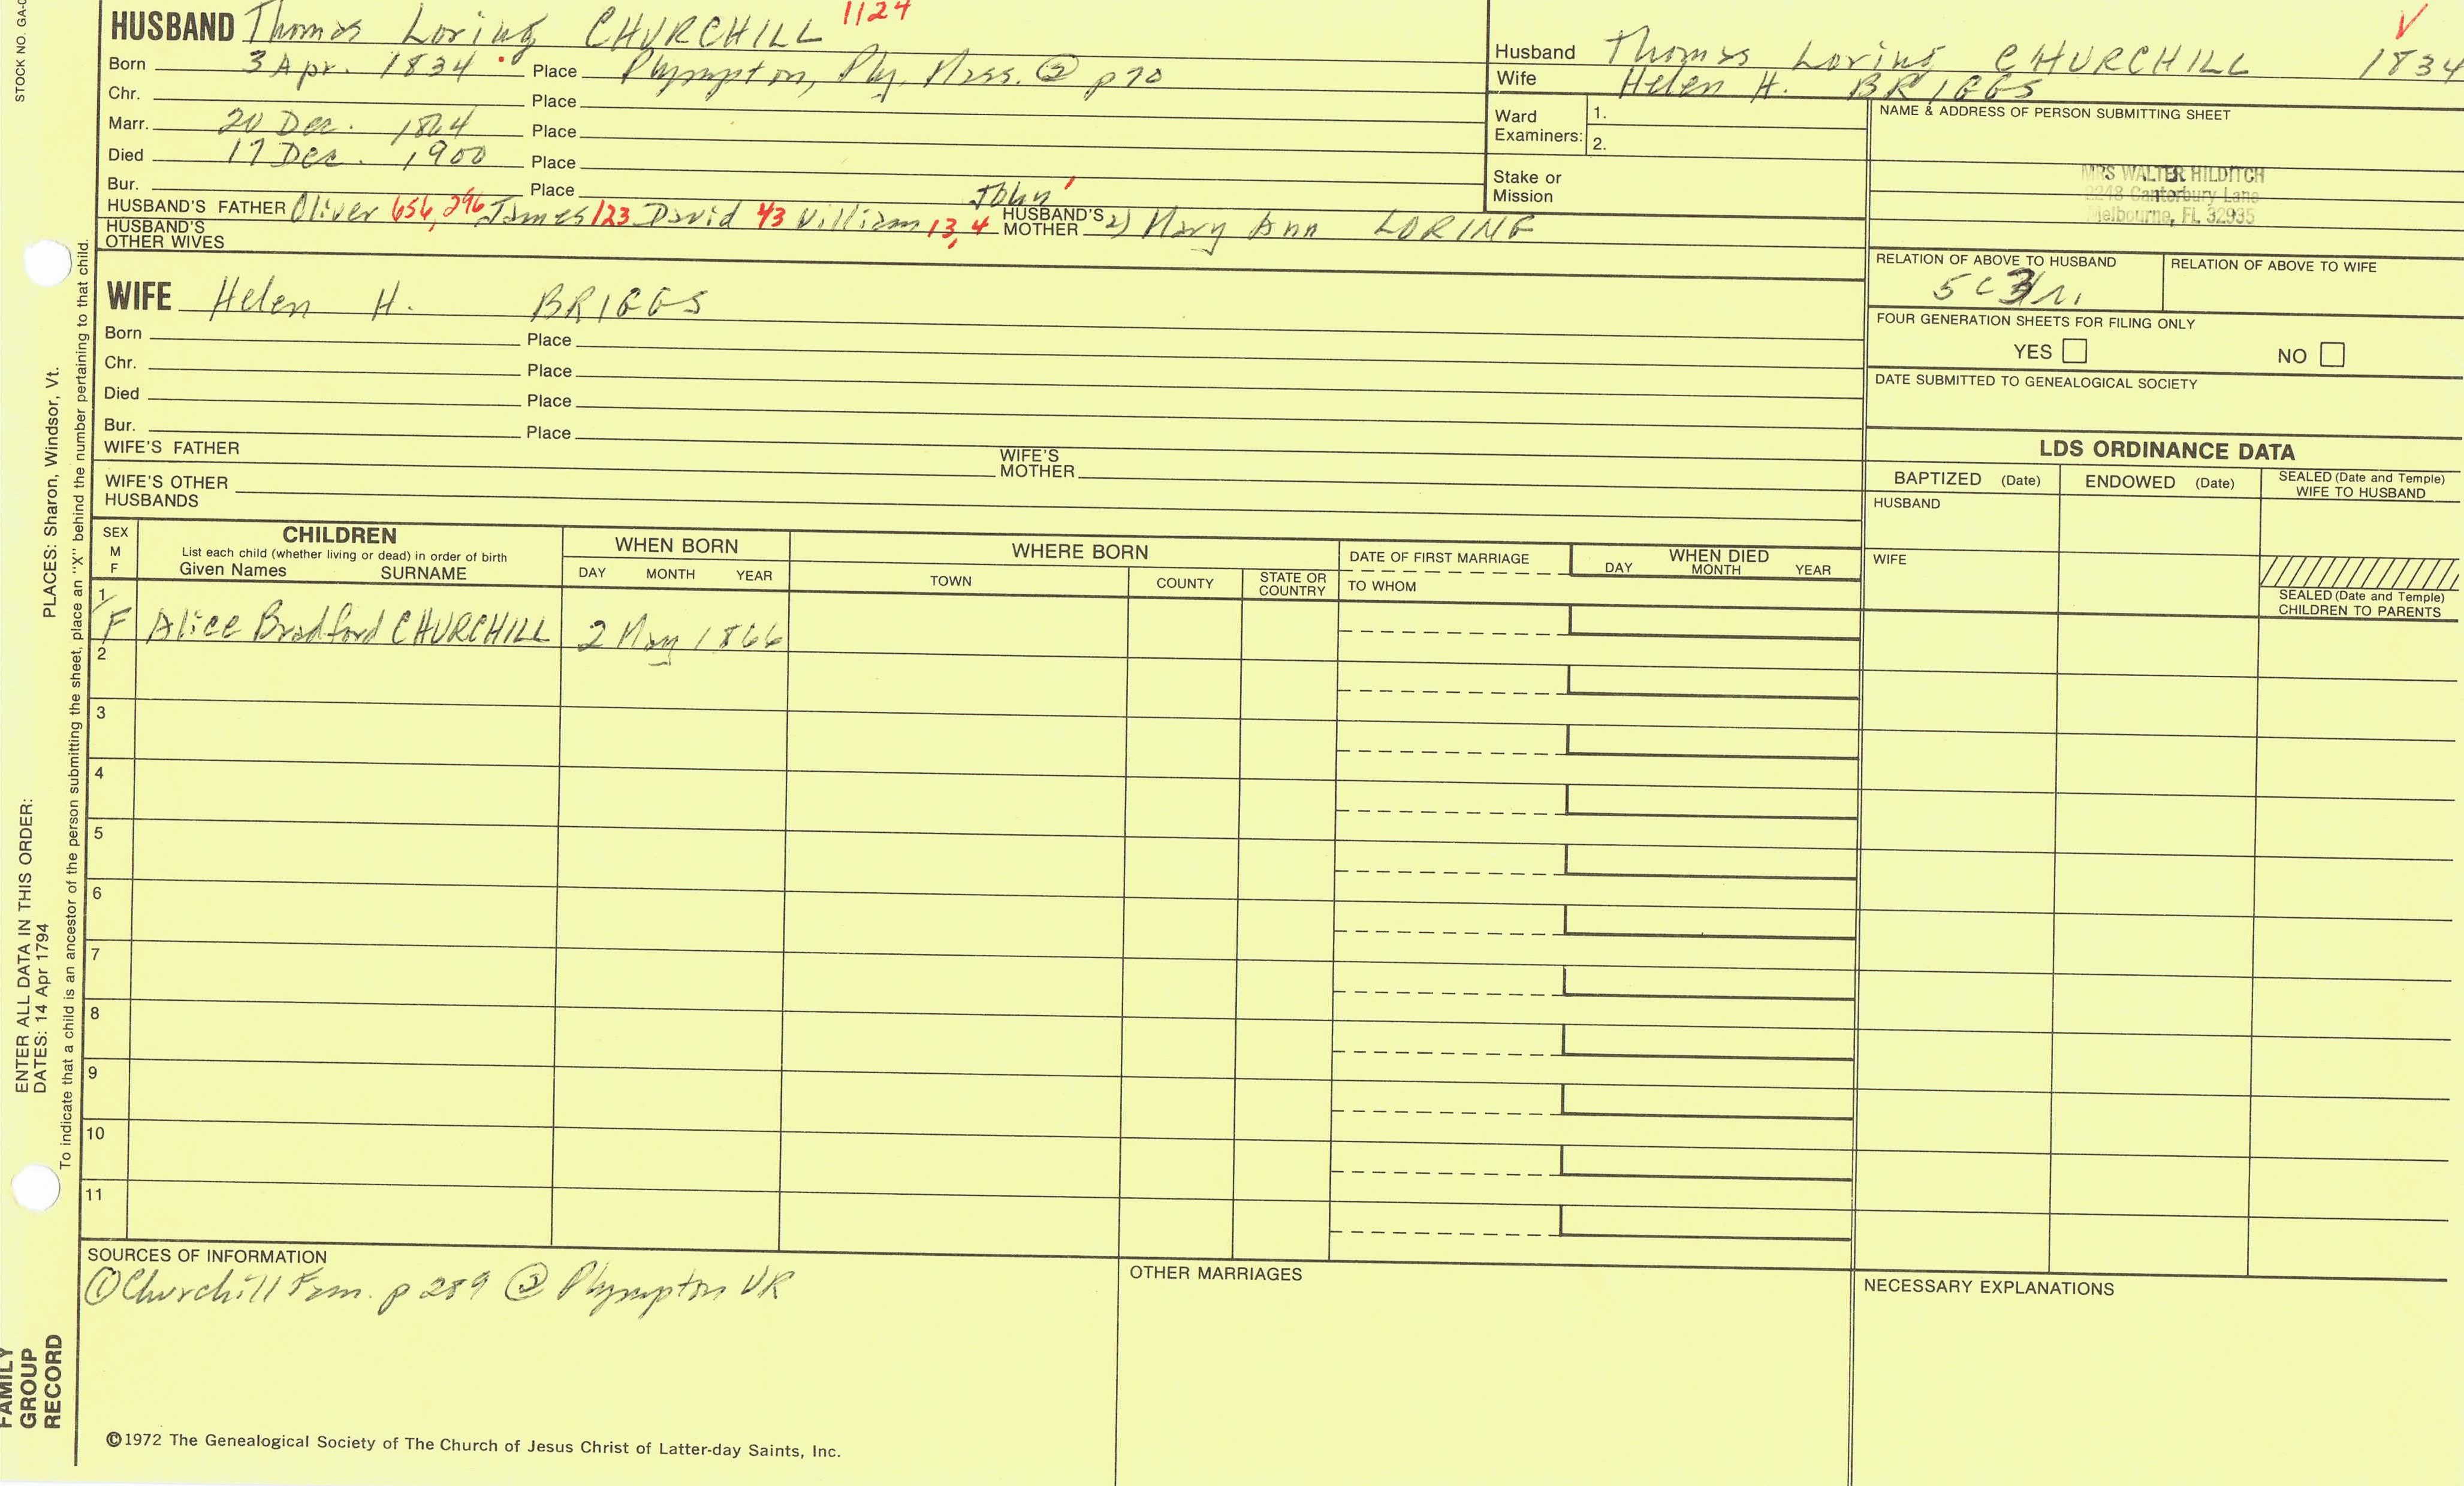 STOCK NO. GA-0
PLACES: Sharon, Windsor, Vt.
ENTER ALL DATA IN THIS ORDER:
DATES: 14 Apr 1794
To indicate that a child is an ancestor of the person submitting the sheet, place an "X" behind the number pertaining to that child.
FAMILY
GROUP
RECORD
1124
HUSBAND Thomas Loring CHURCHILL
Born 3 Apr. 1834 Place Plympton, Ply, Mass. ② p 70
Chr. Place
Marr. 20 Dec. 1864 Place
Died 17 Dec. 1900 Place
Bur. Place
John 1
HUSBAND'S FATHER Oliver 656, 296 James 123 David 43 William 13, 4 HUSBAND'S MOTHER 2) Mary Ann LORING
HUSBAND'S OTHER WIVES
WIFE Helen H. BRIGGS
Born Place
Chr. Place
Died Place
Bur. Place
WIFE'S FATHER WIFE'S MOTHER
WIFE'S OTHER HUSBANDS
V
Husband Thomas Loring CHURCHILL 1834
Wife Helen H. BRIGGS
Ward Examiners: 1.
2.
Stake or Mission
NAME & ADDRESS OF PERSON SUBMITTING SHEET
MRS WALTER HILDITCH
2248 Canterbury Lane
Melbourne, FL 32935
RELATION OF ABOVE TO HUSBAND RELATION OF ABOVE TO WIFE
5 C 3 r.
FOUR GENERATION SHEETS FOR FILING ONLY
YES NO
DATE SUBMITTED TO GENEALOGICAL SOCIETY
LDS ORDINANCE DATA
BAPTIZED (Date) ENDOWED (Date) SEALED (Date and Temple) WIFE TO HUSBAND
HUSBAND
WIFE
SEALED (Date and Temple) CHILDREN TO PARENTS
SEX M F CHILDREN WHEN BORN WHERE BORN DATE OF FIRST MARRIAGE WHEN DIED
List each child (whether living or dead) in order of birth
Given Names SURNAME DAY MONTH YEAR TOWN COUNTY STATE OR COUNTRY TO WHOM DAY MONTH YEAR
1
F Alice Bradford CHURCHILL 2 May 1866
2
3
4
5
6
7
8
9
10
11
SOURCES OF INFORMATION
① Churchill Fam. p 289 ② Plympton VR
OTHER MARRIAGES
NECESSARY EXPLANATIONS
©1972 The Genealogical Society of The Church of Jesus Christ of Latter-day Saints, Inc.